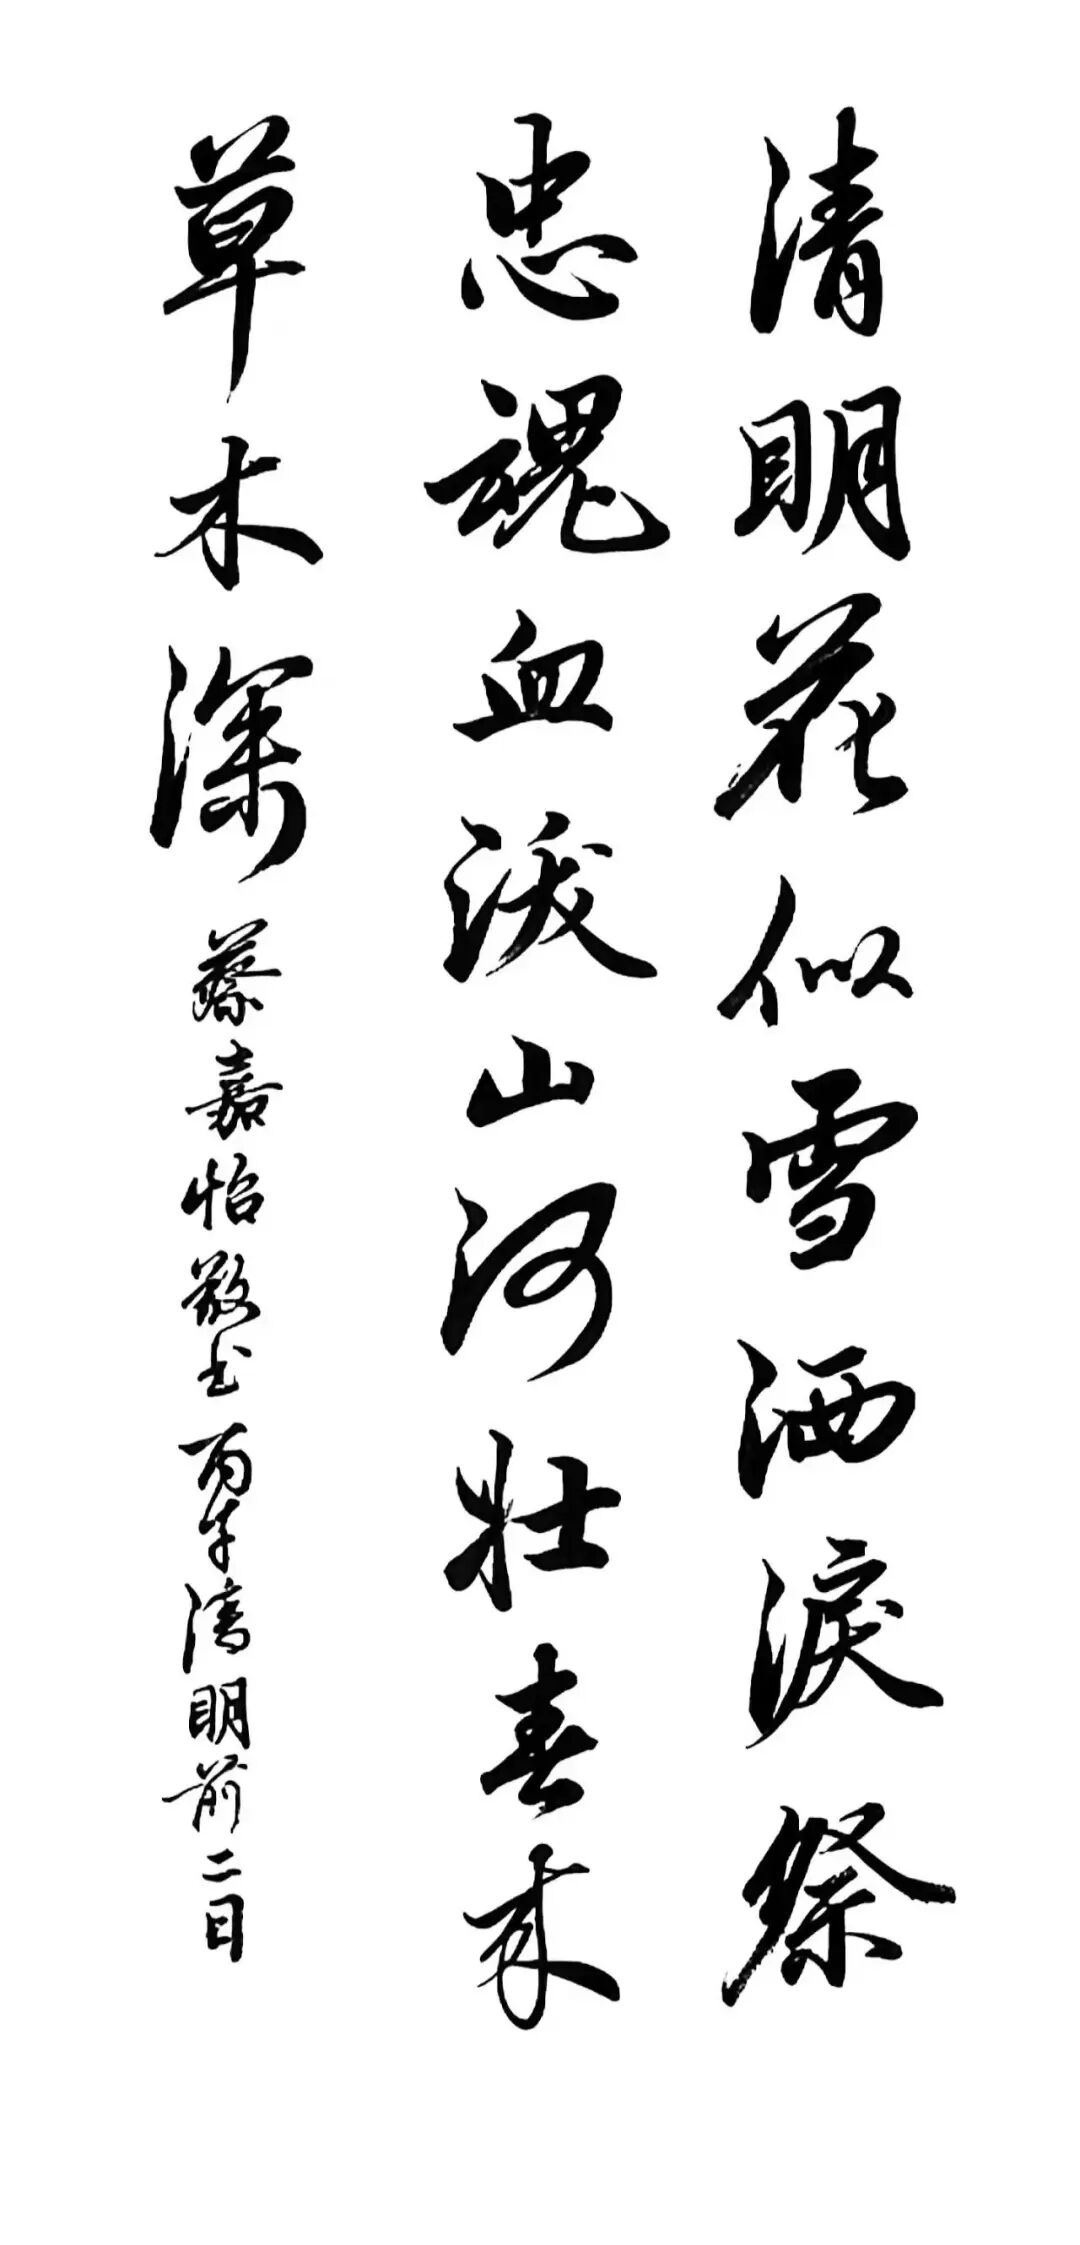 清明花似雪洒淚祭
忠魂血泼山河壮春来
草木深 蔡嘉怡敬书 丙午清明前二日